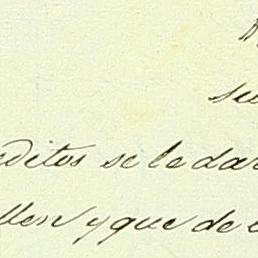 su
editos se le dar
llen y que de e